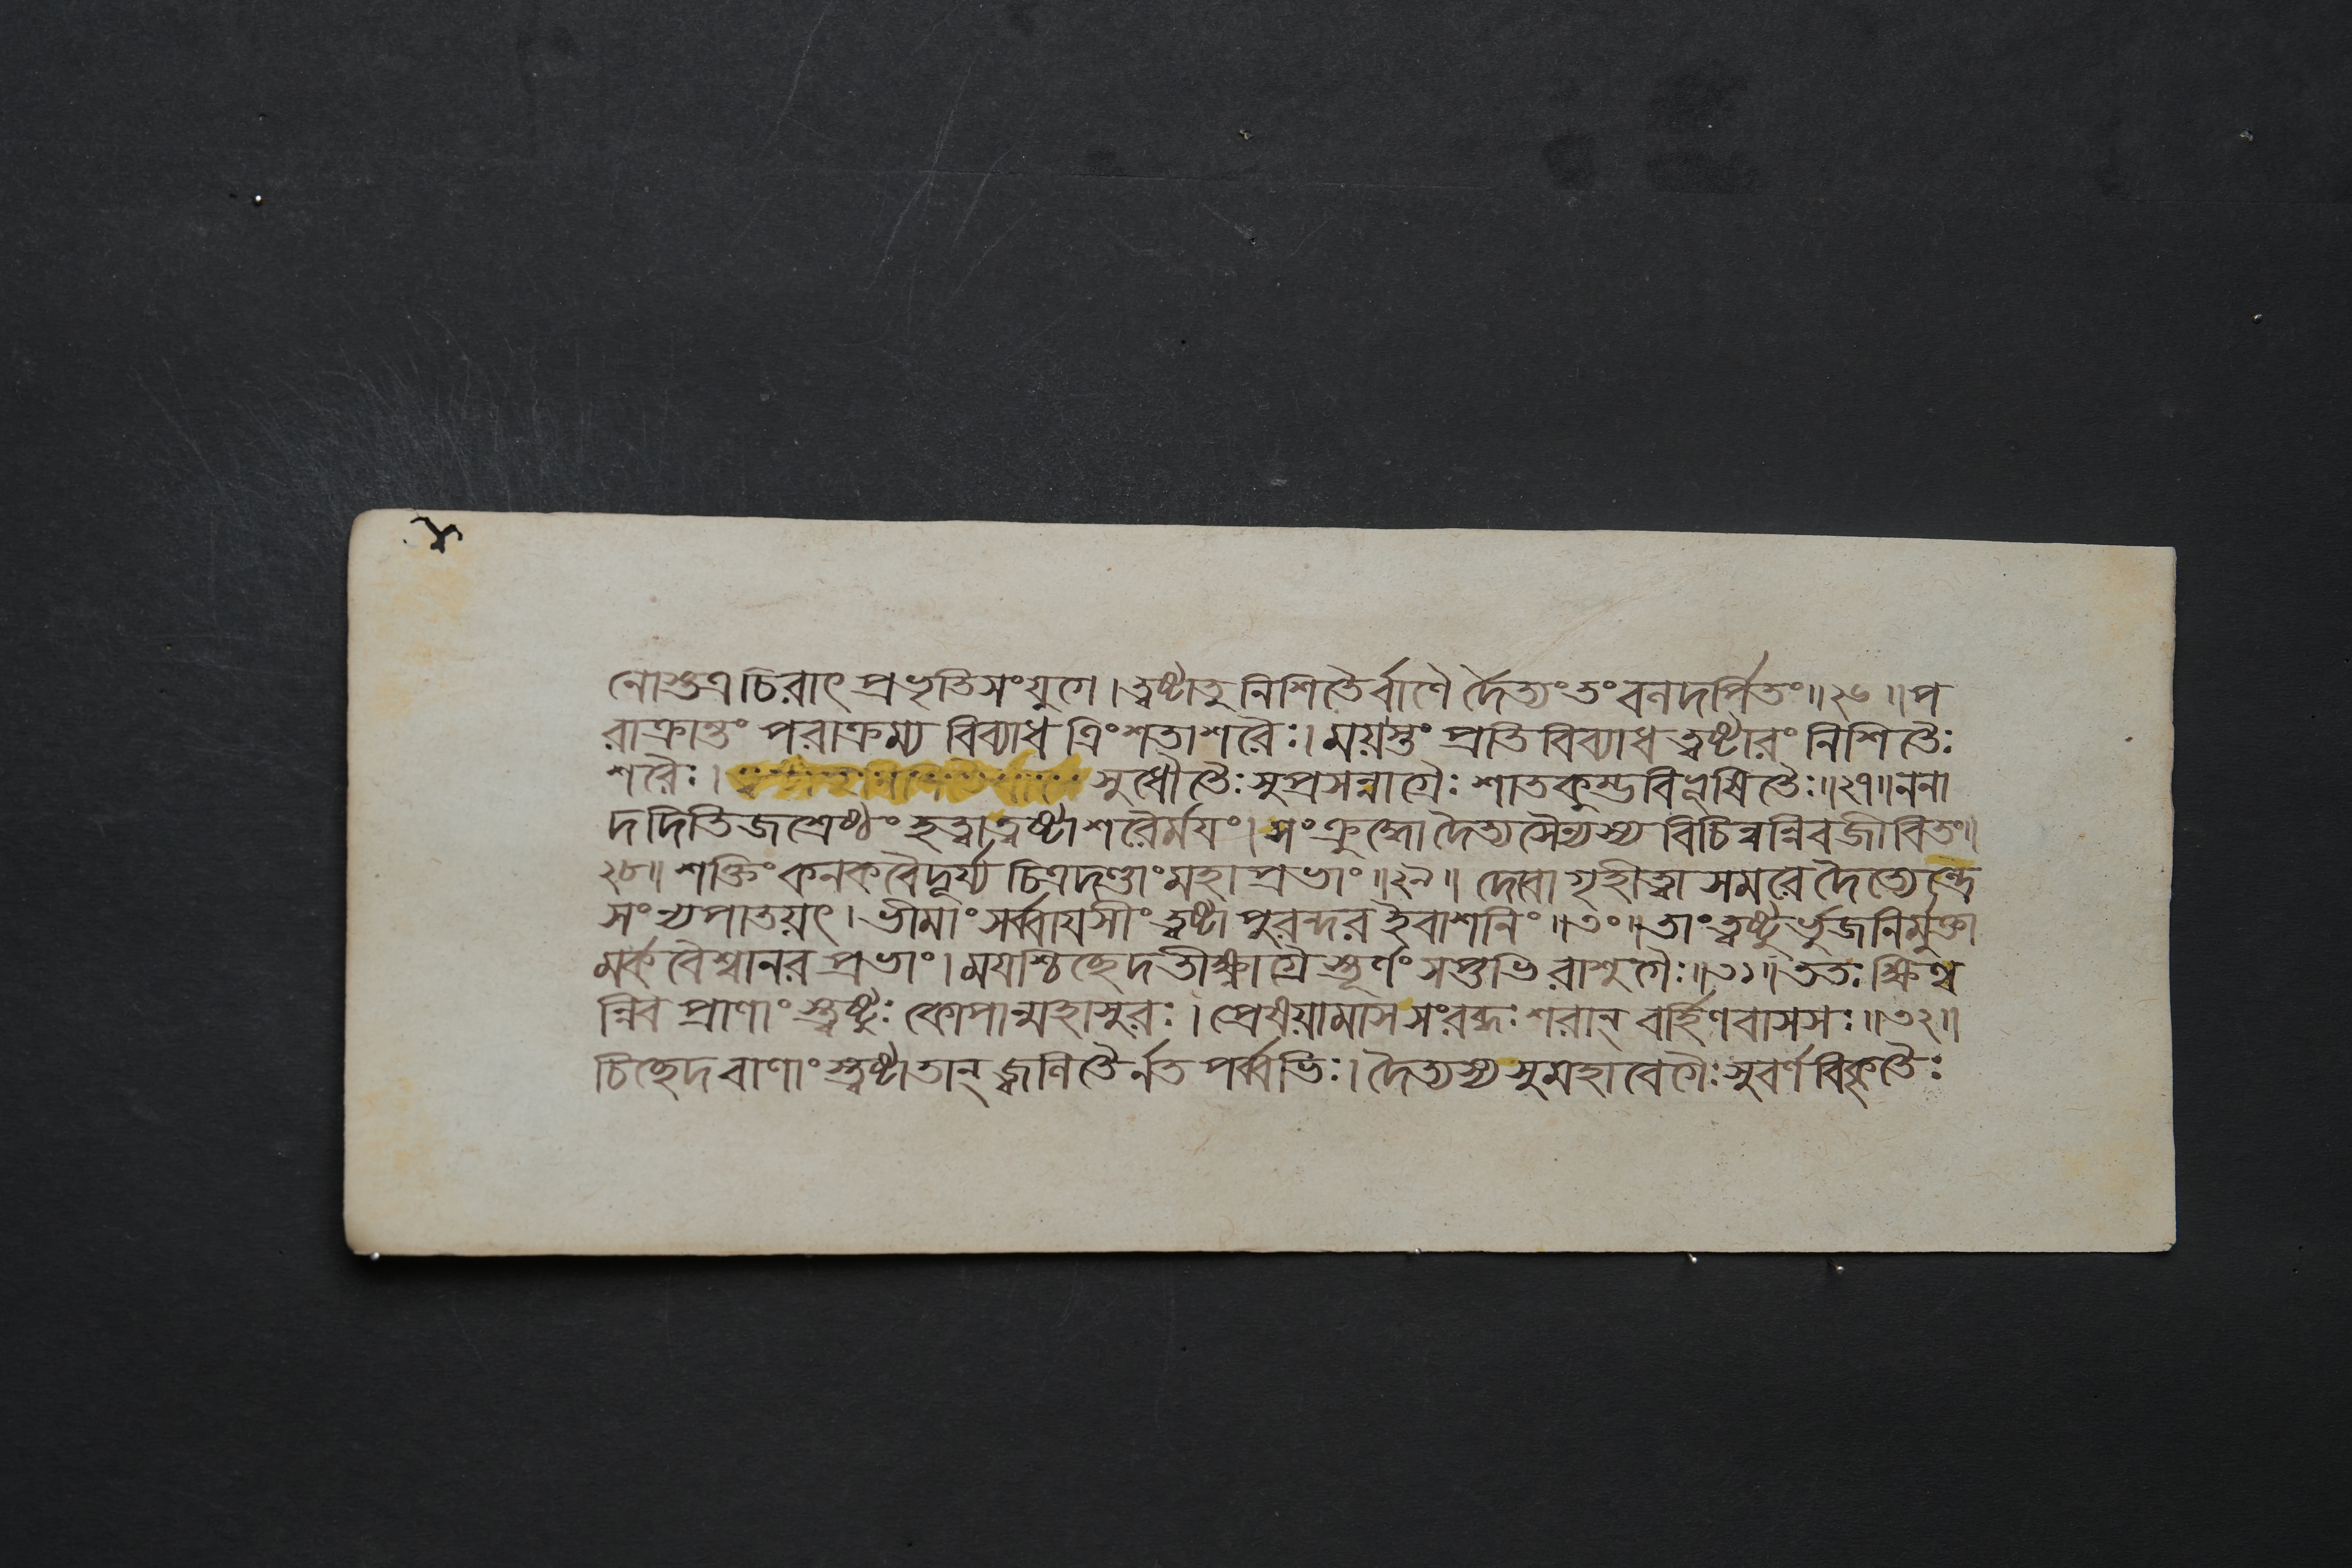 নোশুত্র চিরাৎ প্রভৃতিসংযুগে। ত্বষ্টাতু নিশিতৈর্বাণৈ র্দৈত্যং তং বলদর্পিতং॥২৬॥ প
রাক্রান্তং পরাক্রম্য বিব্যাধ ত্রিংশতাশরৈঃ। ময়স্তুং প্রতি বিব্যাধ ত্বষ্টারং নিশিতৈঃ
শরৈঃ। সুধৌতৈঃ সুপ্রসন্নাগ্রৈঃ শাতকুম্ভবিভূষিতৈঃ॥২৭॥ ননা
দ দিতিজশ্রেষ্ঠং হত্বা ত্বষ্টা শরৈর্ময়ং। সংক্রুদ্ধো দৈত্যসৈন্যস্য বিচিন্বন্নিব জীবিতং॥
২৮॥ শক্তিং কনকবৈদূর্য্য চিত্রদণ্ডাং মহাপ্রভাং॥২৯॥ দেবা গৃহীত্বা সমরে দৈত্যেন্দ্রে
সংন্যপাতয়ৎ। ভীমাং সর্ব্বায়সীং ত্বষ্টা পুরন্দর ইবাশনিং॥৩০॥ তাং ত্বষ্টুর্ভুজনির্মুক্তা
মর্কবৈশ্বানর প্রভাং। ময়শ্চিচ্ছেদ তীক্ষ্ণাগ্রৈস্তূর্ণং সপ্তভি রাশুগৈঃ॥৩১॥ ততঃ ক্ষিণ্ব
ন্নিব প্রাণাং স্ত্বষ্টুঃ কোপান্মহাসুরঃ। প্রেষয়ামাস সংরব্ধঃ শরান্ বর্হিণবাসসঃ॥৩২॥
চিচ্ছেদ বাণাং স্ত্বষ্টা তান্ জ্বলিতৈর্নত পর্ব্বভিঃ। দৈত্যস্য সুমহাবেগৈঃ সুবর্ণবিকৃতৈঃ